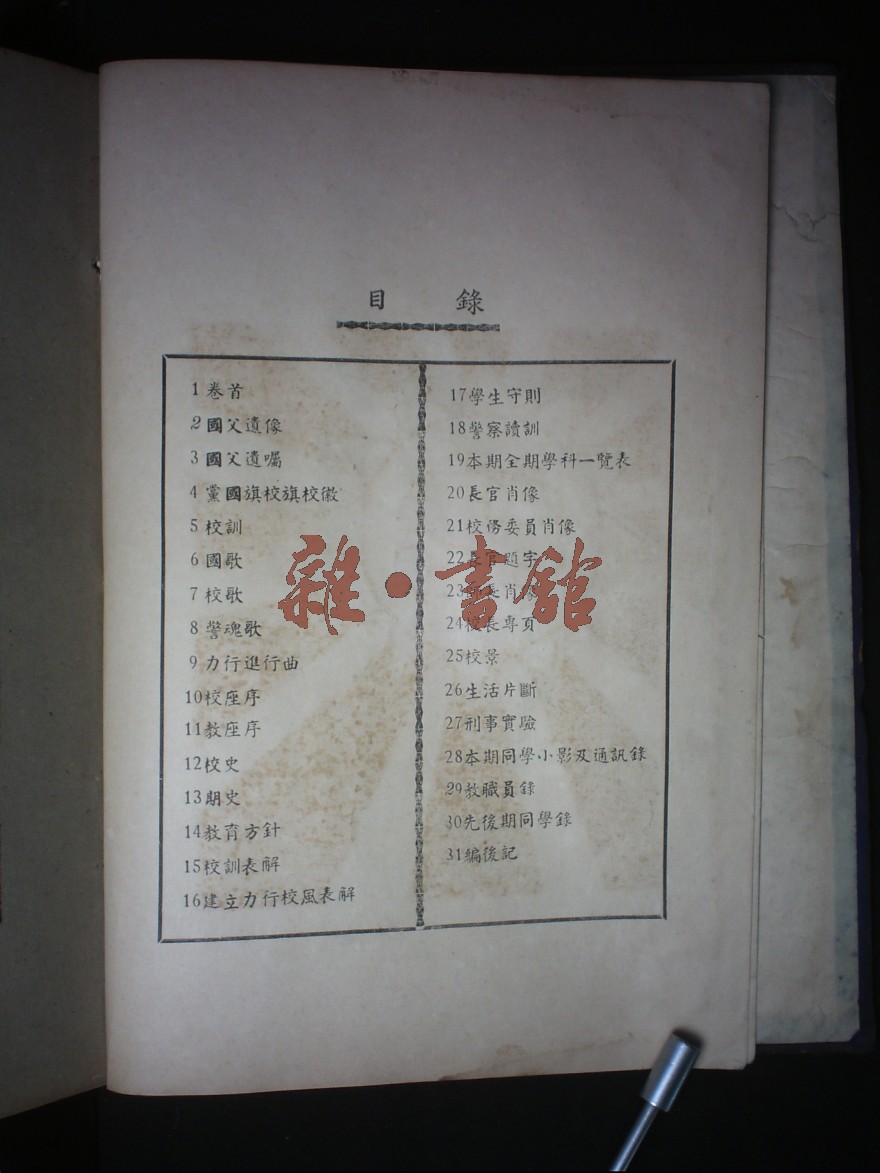 目錄
1卷首
2國父遺像
3國父遺囑
4黨國旗校旗校徽
5校訓
6國歌
7校歌
8警魂歌
9力行進行曲
10校座序
11教座序
12校史
13期史
14教育方針
15校訓表解
16建立力行校風表解
17學生守則
18警察讀訓
19本期全期學科一覽表
20長官肖像
21校務委員肖像
22長官題字
23師長肖像
24校長專頁
25校景
26生活片斷
27刑事實驗
28本期同學小影及通訊錄
29教職員錄
30先後期同學錄
31編後記
雜·書館